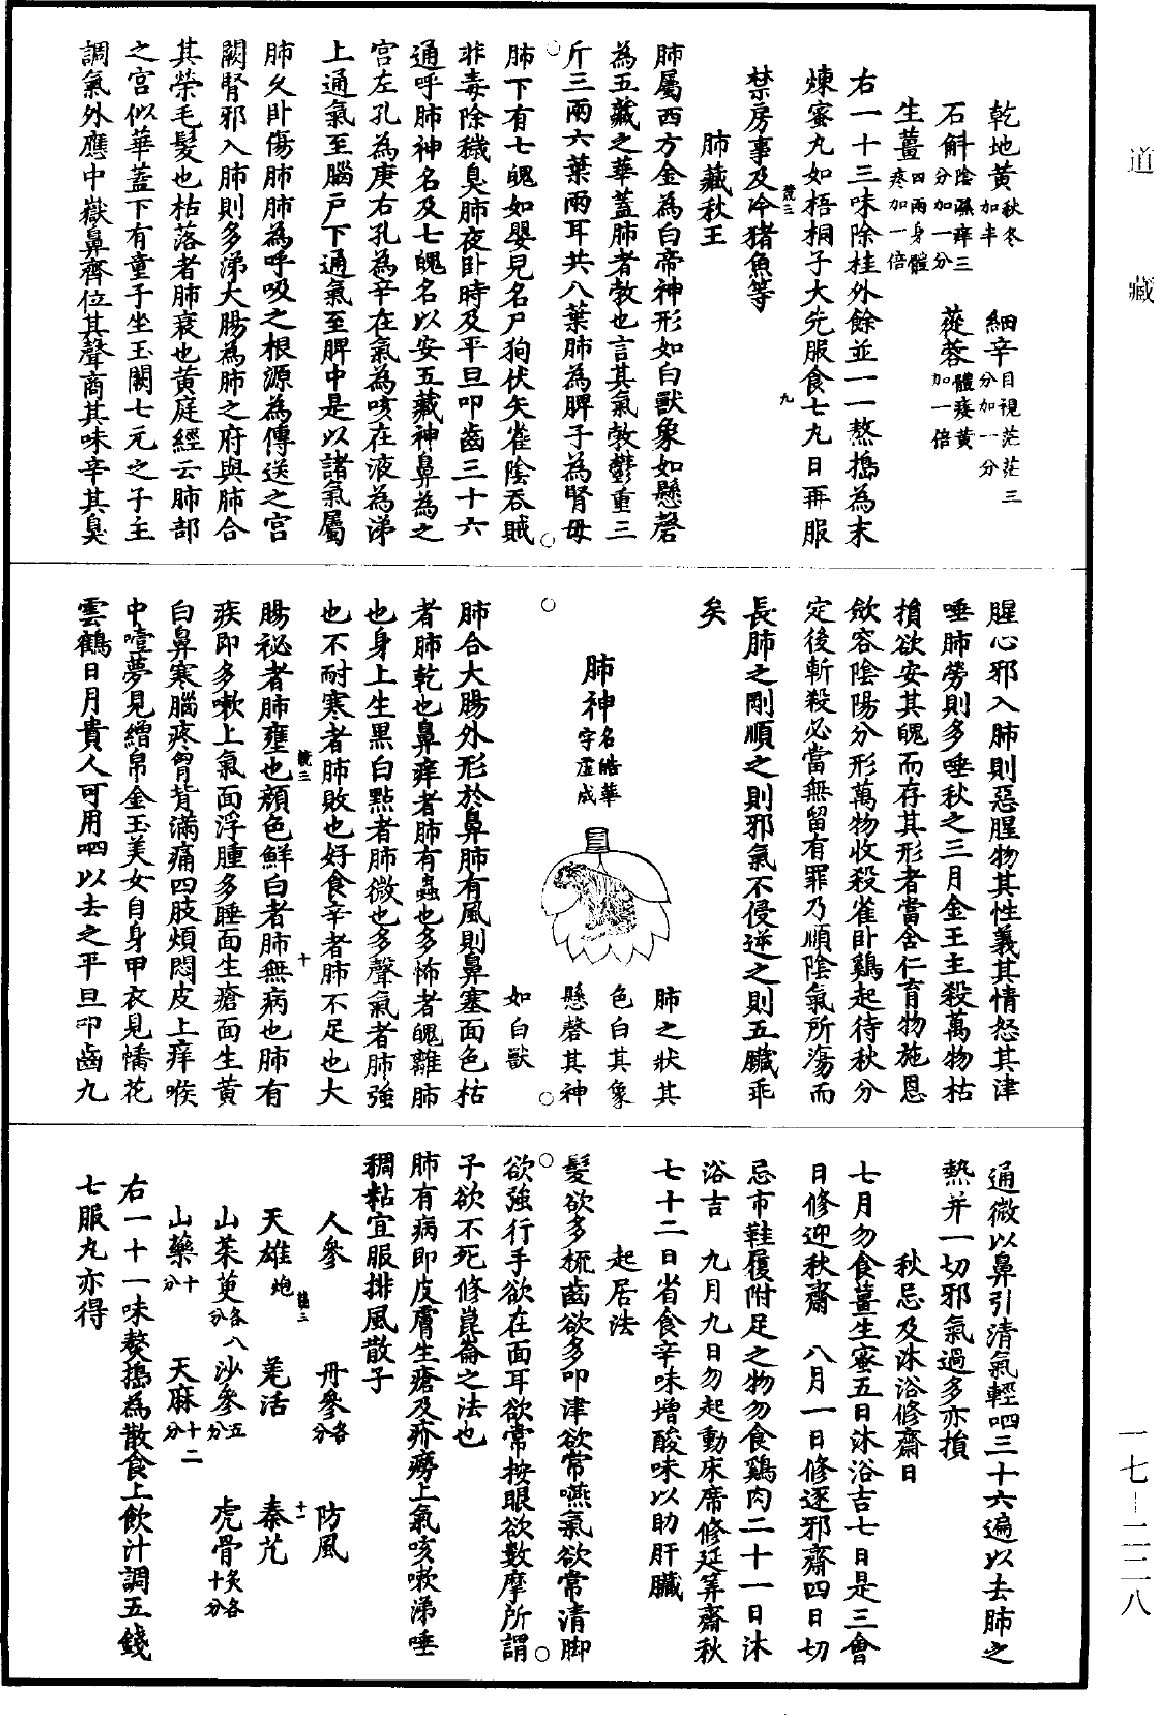 道藏
乾地黃秋冬加半　細辛目視茫茫三分加一分
石斛陰濕癢三分加一分　蓯蓉體痿黃加一倍
生薑四兩身體疼加一倍
右一十三味除桂外餘並一一熬搗為末
煉蜜丸如梧桐子大先服食七丸日再服
禁房事及冷猪魚等
肺藏秋王
肺屬西方金為白帝神形如白獸象如懸磬
為五藏之華蓋肺者勃也言其氣勃鬱重三
斤三兩六葉兩耳共八葉肺為脾子為腎母
肺下有七魄如嬰兒名尸狗伏矢雀陰吞賊
非毒除穢臭肺夜臥時及平旦叩齒三十六
通呼肺神名及七魄名以安五藏神鼻為之
宮左孔為庚右孔為辛在氣為咳在液為涕
上通氣至腦戶下通氣至脾中是以諸氣屬
肺久臥傷肺肺為呼吸之根源為傳送之宮
闕腎邪入肺則多涕大腸為肺之府與肺合
其榮毛髮也枯落者肺衰也黃庭經云肺部
之宮似華蓋下有童子坐玉闕七元之子主
調氣外應中嶽鼻齊位其聲商其味辛其臭
腥心邪入肺則惡腥物其性義其情怒其津
唾肺勞則多唾秋之三月金王主殺萬物枯
損欲安其魄而存其形者當含仁育物施恩
歛容陰陽分形萬物收殺雀臥鷄起待秋分
定後斬殺必當無留有罪乃順陰氣所蕩而
長肺之剛順之則邪氣不侵逆之則五臟乖
矣
肺神名皓華字虛成
肺之狀其
色白其象
懸磬其神
如白獸
肺合大腸外形於鼻肺有風則鼻塞面色枯
者肺乾也鼻痒者肺有蟲也多怖者魄離肺
也身上生黑白點者肺微也多聲氣者肺強
也不耐寒者肺敗也好食辛者肺不足也大
腸祕者肺壅也顏色鮮白者肺無病也肺有
疾即多嗽上氣面浮腫多睡面生瘡面生黃
白鼻寒腦疼胷背滿痛四肢煩悶皮上痒喉
中噎夢見繒帛金玉美女自身甲衣見幡花
雲鶴日月貴人可用呬以去之平旦叩齒九
通微以鼻引清氣輕呬三十六遍以去肺之
熱并一切邪氣過多亦損
秋忌及沐浴修齋日
七月勿食薑生蜜五日沐浴吉七日是三會
日修迎秋齋　八月一日修逐邪齋四日切
忌市鞋履附足之物勿食鷄肉二十一日沐
浴吉　九月九日勿起動床席修延筭齋秋
七十二日省食辛味增酸味以助肝臟
起居法
髮欲多梳齒欲多叩津欲常嚥氣欲常清脚
欲強行手欲在面耳欲常按眼欲數摩所謂
子欲不死修崑崙之法也
肺有病即皮膚生瘡及疥癆上氣咳嗽涕唾
稠粘宜服排風散子
人參　丹參各分　防風
天雄炮　羌活　秦艽
山茱萸各八分　沙參五分　虎骨炙各十分
山藥十分　天麻十二分
右一十一味熬搗為散食上飲汁調五錢
七服丸亦得
一七-二二八